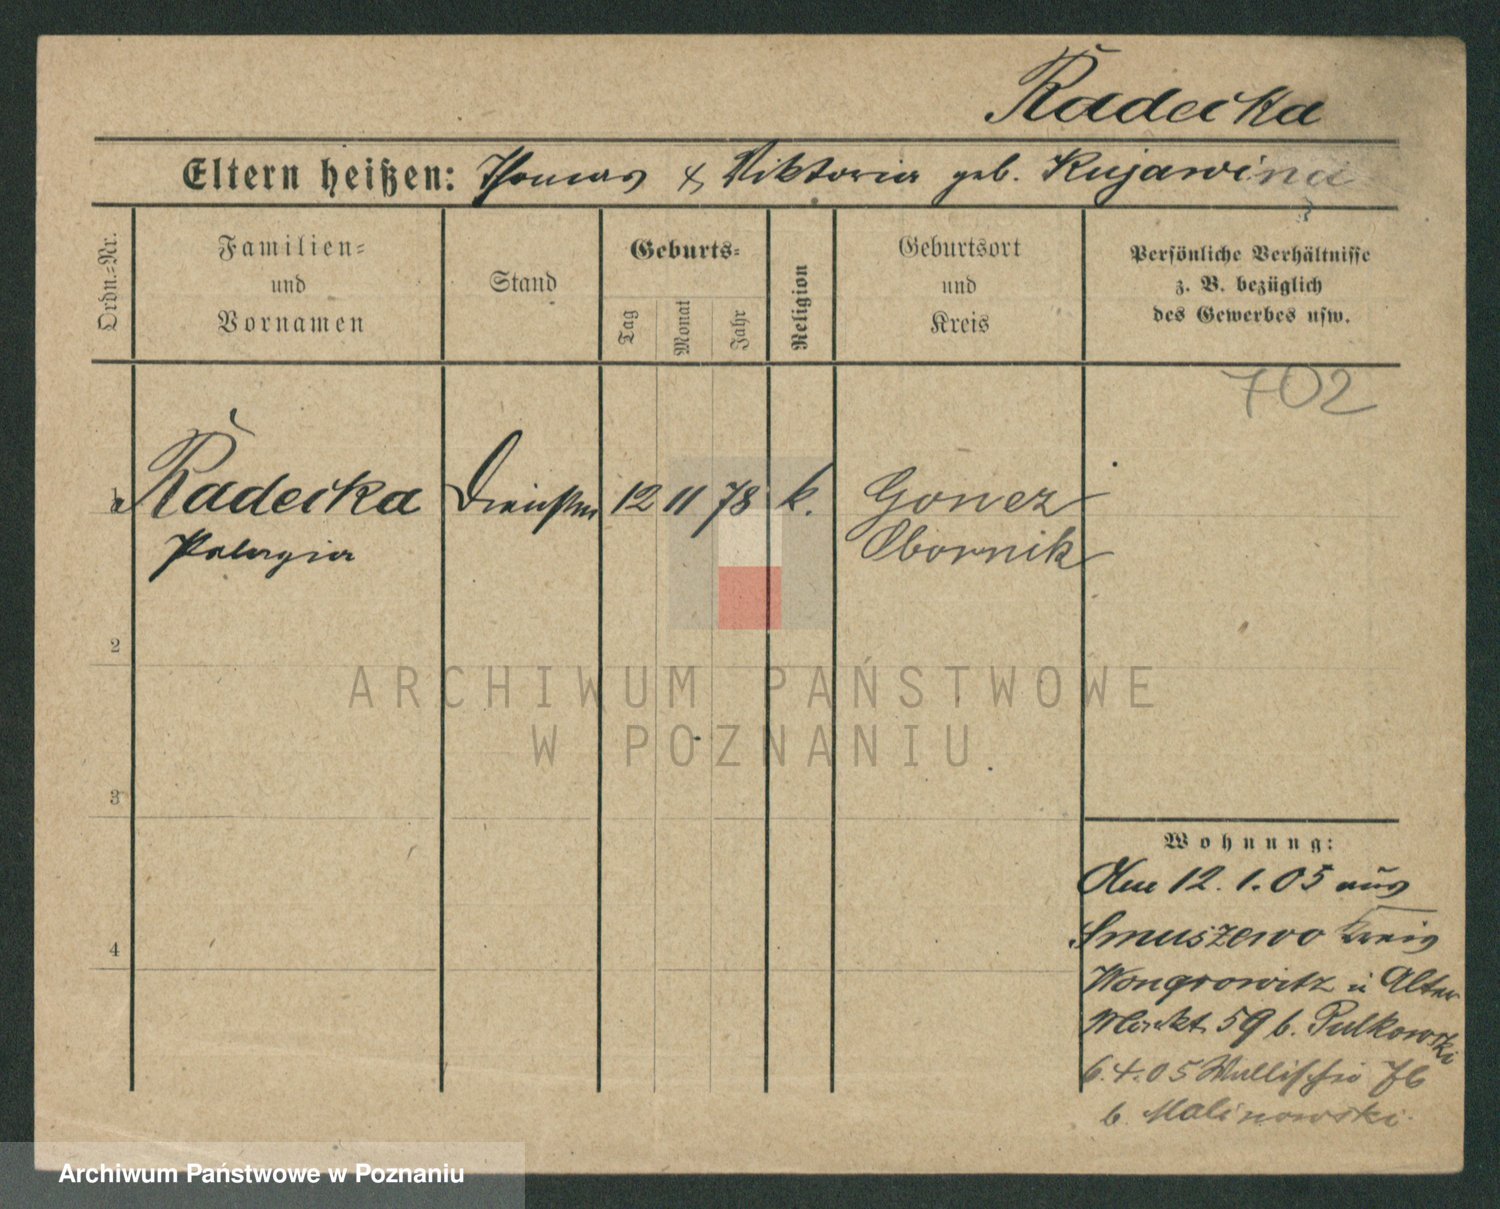 Radecka
Eltern heißen: Thomas & Viktoria geb. Kujawina
Ordn.-Nr.
Familien-
und
Vornamen
Stand
Geburts-
Tag
Monat
Jahr
Religion
Geburtsort
und
Kreis
Persönliche Verhältnisse
z. B. bezüglich
des Gewerbes usw.
702
1
Radecka
Pelagia
12 11 78 k.
Gonez
Obornik
2
ARCHIWUM PAŃSTWOWE
W POZNANIU
3
4
Wohnung:
Am 12. 1. 05 aus
Smuszewo Kreis
Wongrowitz in Alter
Markt 59 b. Pulkowski
6.4.05 Wallischei
b. Malinowski.
Archiwum Państwowe w Poznaniu